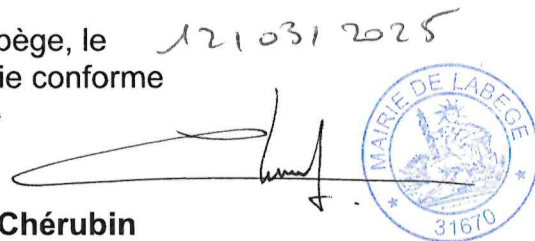 bège, le 12/03/2025
ie conforme
Chérubin
MAIRIE DE LABEGE
31670